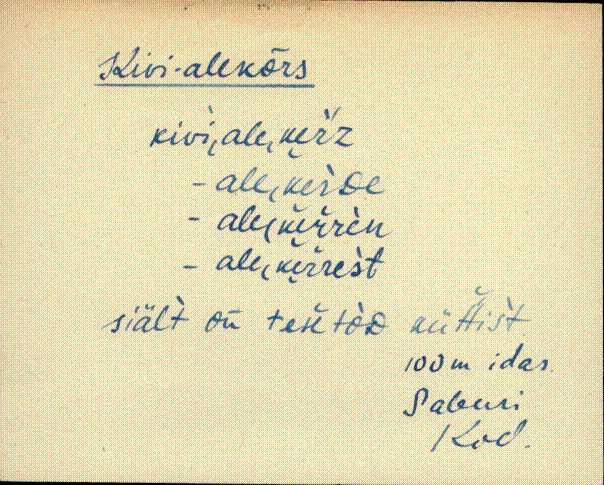 Kivi-alekõrs
kivi, ale, kerz
- ale, kerde
- ale, kerren
- ale, kerrest
siält on tehtod küttist
100 m idas.
Saburi
Kod.